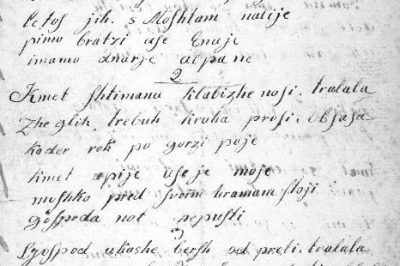 Letos jih. s Moshtam nalije
pimo bratzi use Enuje
imamo dnarje al pa ne
2
Kmet shtimana klabizhe nosi. tralala
Zhe glih. trebuh kruha prosi. obsasa
kader rok po gorzi poje
kmet spije use je moje
moshko pred svoim hramam stoji
gospoda not nepusti
3
Gospod ukashe bersh od preti. tralala